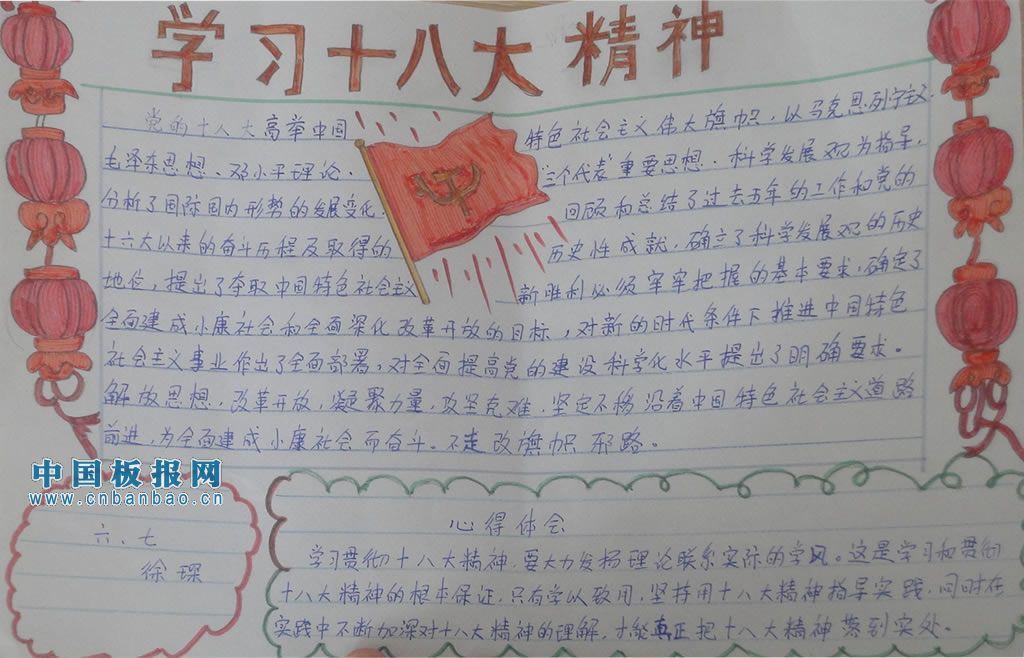 学习十八大精神
党的十八大高举中国特色社会主义伟大旗帜，以马克思列宁主义、
毛泽东思想、邓小平理论、"三个代表"重要思想、科学发展观为指导，
分析了国际国内形势的发展变化，回顾和总结了过去五年的工作和党的
十六大以来的奋斗历程及取得的历史性成就，确立了科学发展观的历史
地位，提出了夺取中国特色社会主义新胜利必须牢牢把握的基本要求，确定了
全面建成小康社会和全面深化改革开放的目标，对新的时代条件下推进中国特色
社会主义事业作出了全面部署，对全面提高党的建设科学化水平提出了明确要求。
解放思想，改革开放，凝聚力量，攻坚克难，坚定不移沿着中国特色社会主义道路
前进，为全面建成小康社会而奋斗。不走改旗帜邪路。
中国板报网
www.cnbanbao.cn
六、七
徐琛
心得体会
学习贯彻十八大精神，要大力发扬理论联系实际的学风。这是学习和贯彻
十八大精神的根本保证，只有学以致用，坚持用十八大精神指导实践，同时在
实践中不断加深对十八大精神的理解，才能真正把十八大精神落到实处。